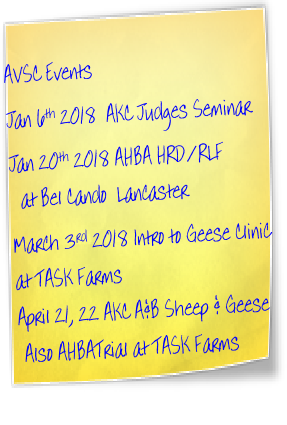 AVSC Events
Jan 6th 2018 AKC Judges Seminar
Jan 20th 2018 AHBA HRD/RLF
at Bel Cando Lancaster
March 3rd 2018 Intro to Geese Clinic
at TASK Farms
April 21, 22 AKC A&B Sheep & Geese
Also AHBATrial at TASK Farms